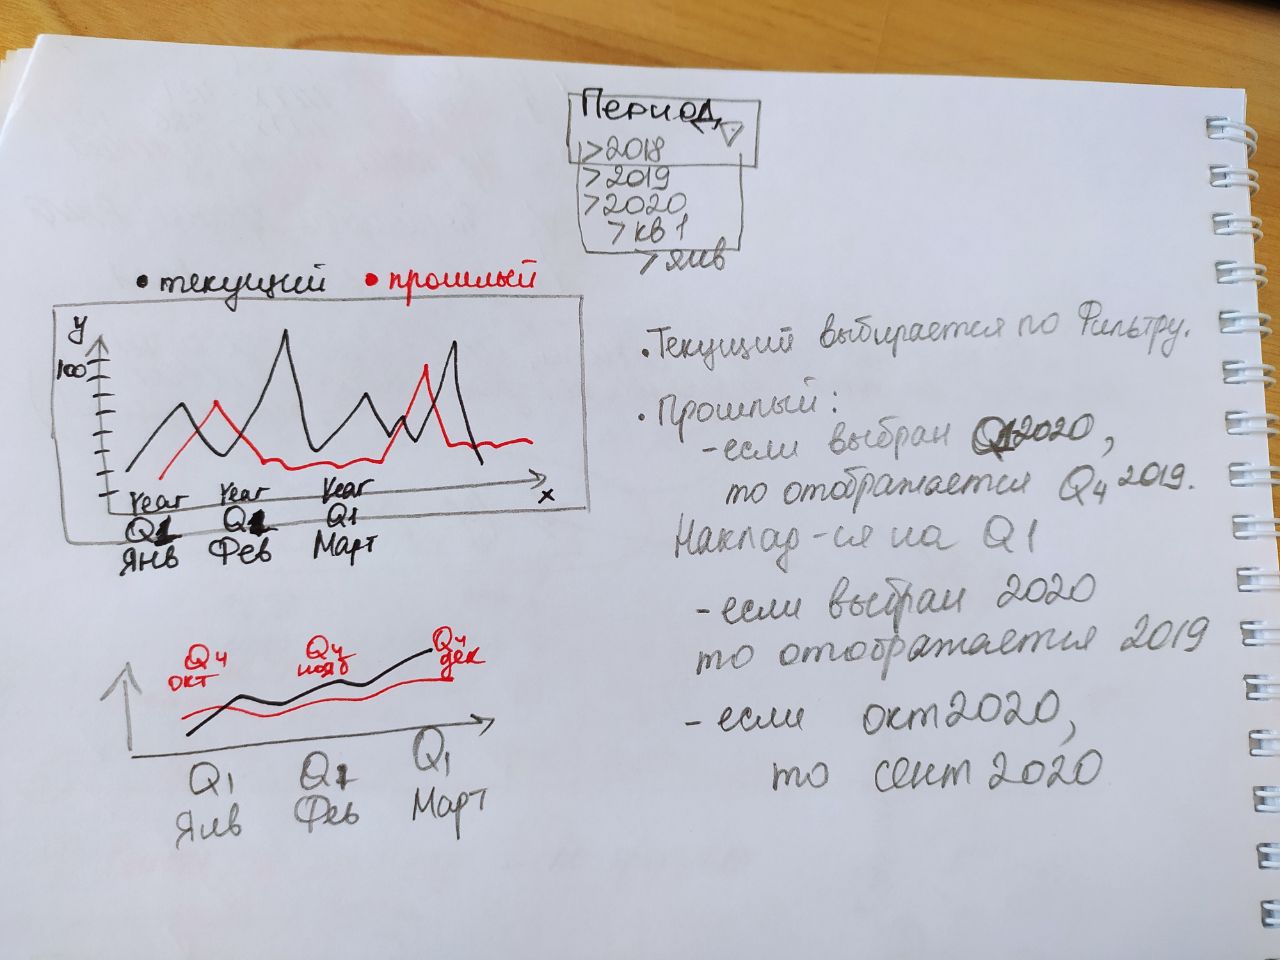 Период
>2018
>2019
>2020
>кв 1
>янв
• текущий • прошлый
y
100
x
Year Year Year
Q1 Q1 Q1
Янв Фев Март
• Текущий выбирается по Фильтру.
• Прошлый:
- если выбран Q1 2020,
то отображается Q4 2019.
Наклад-ся на Q1
- если выбран 2020
то отображается 2019
- если окт 2020,
то сент 2020
Q4 Q4 Q4
окт нояб дек
Q1 Q1 Q1
Янв Фев Март